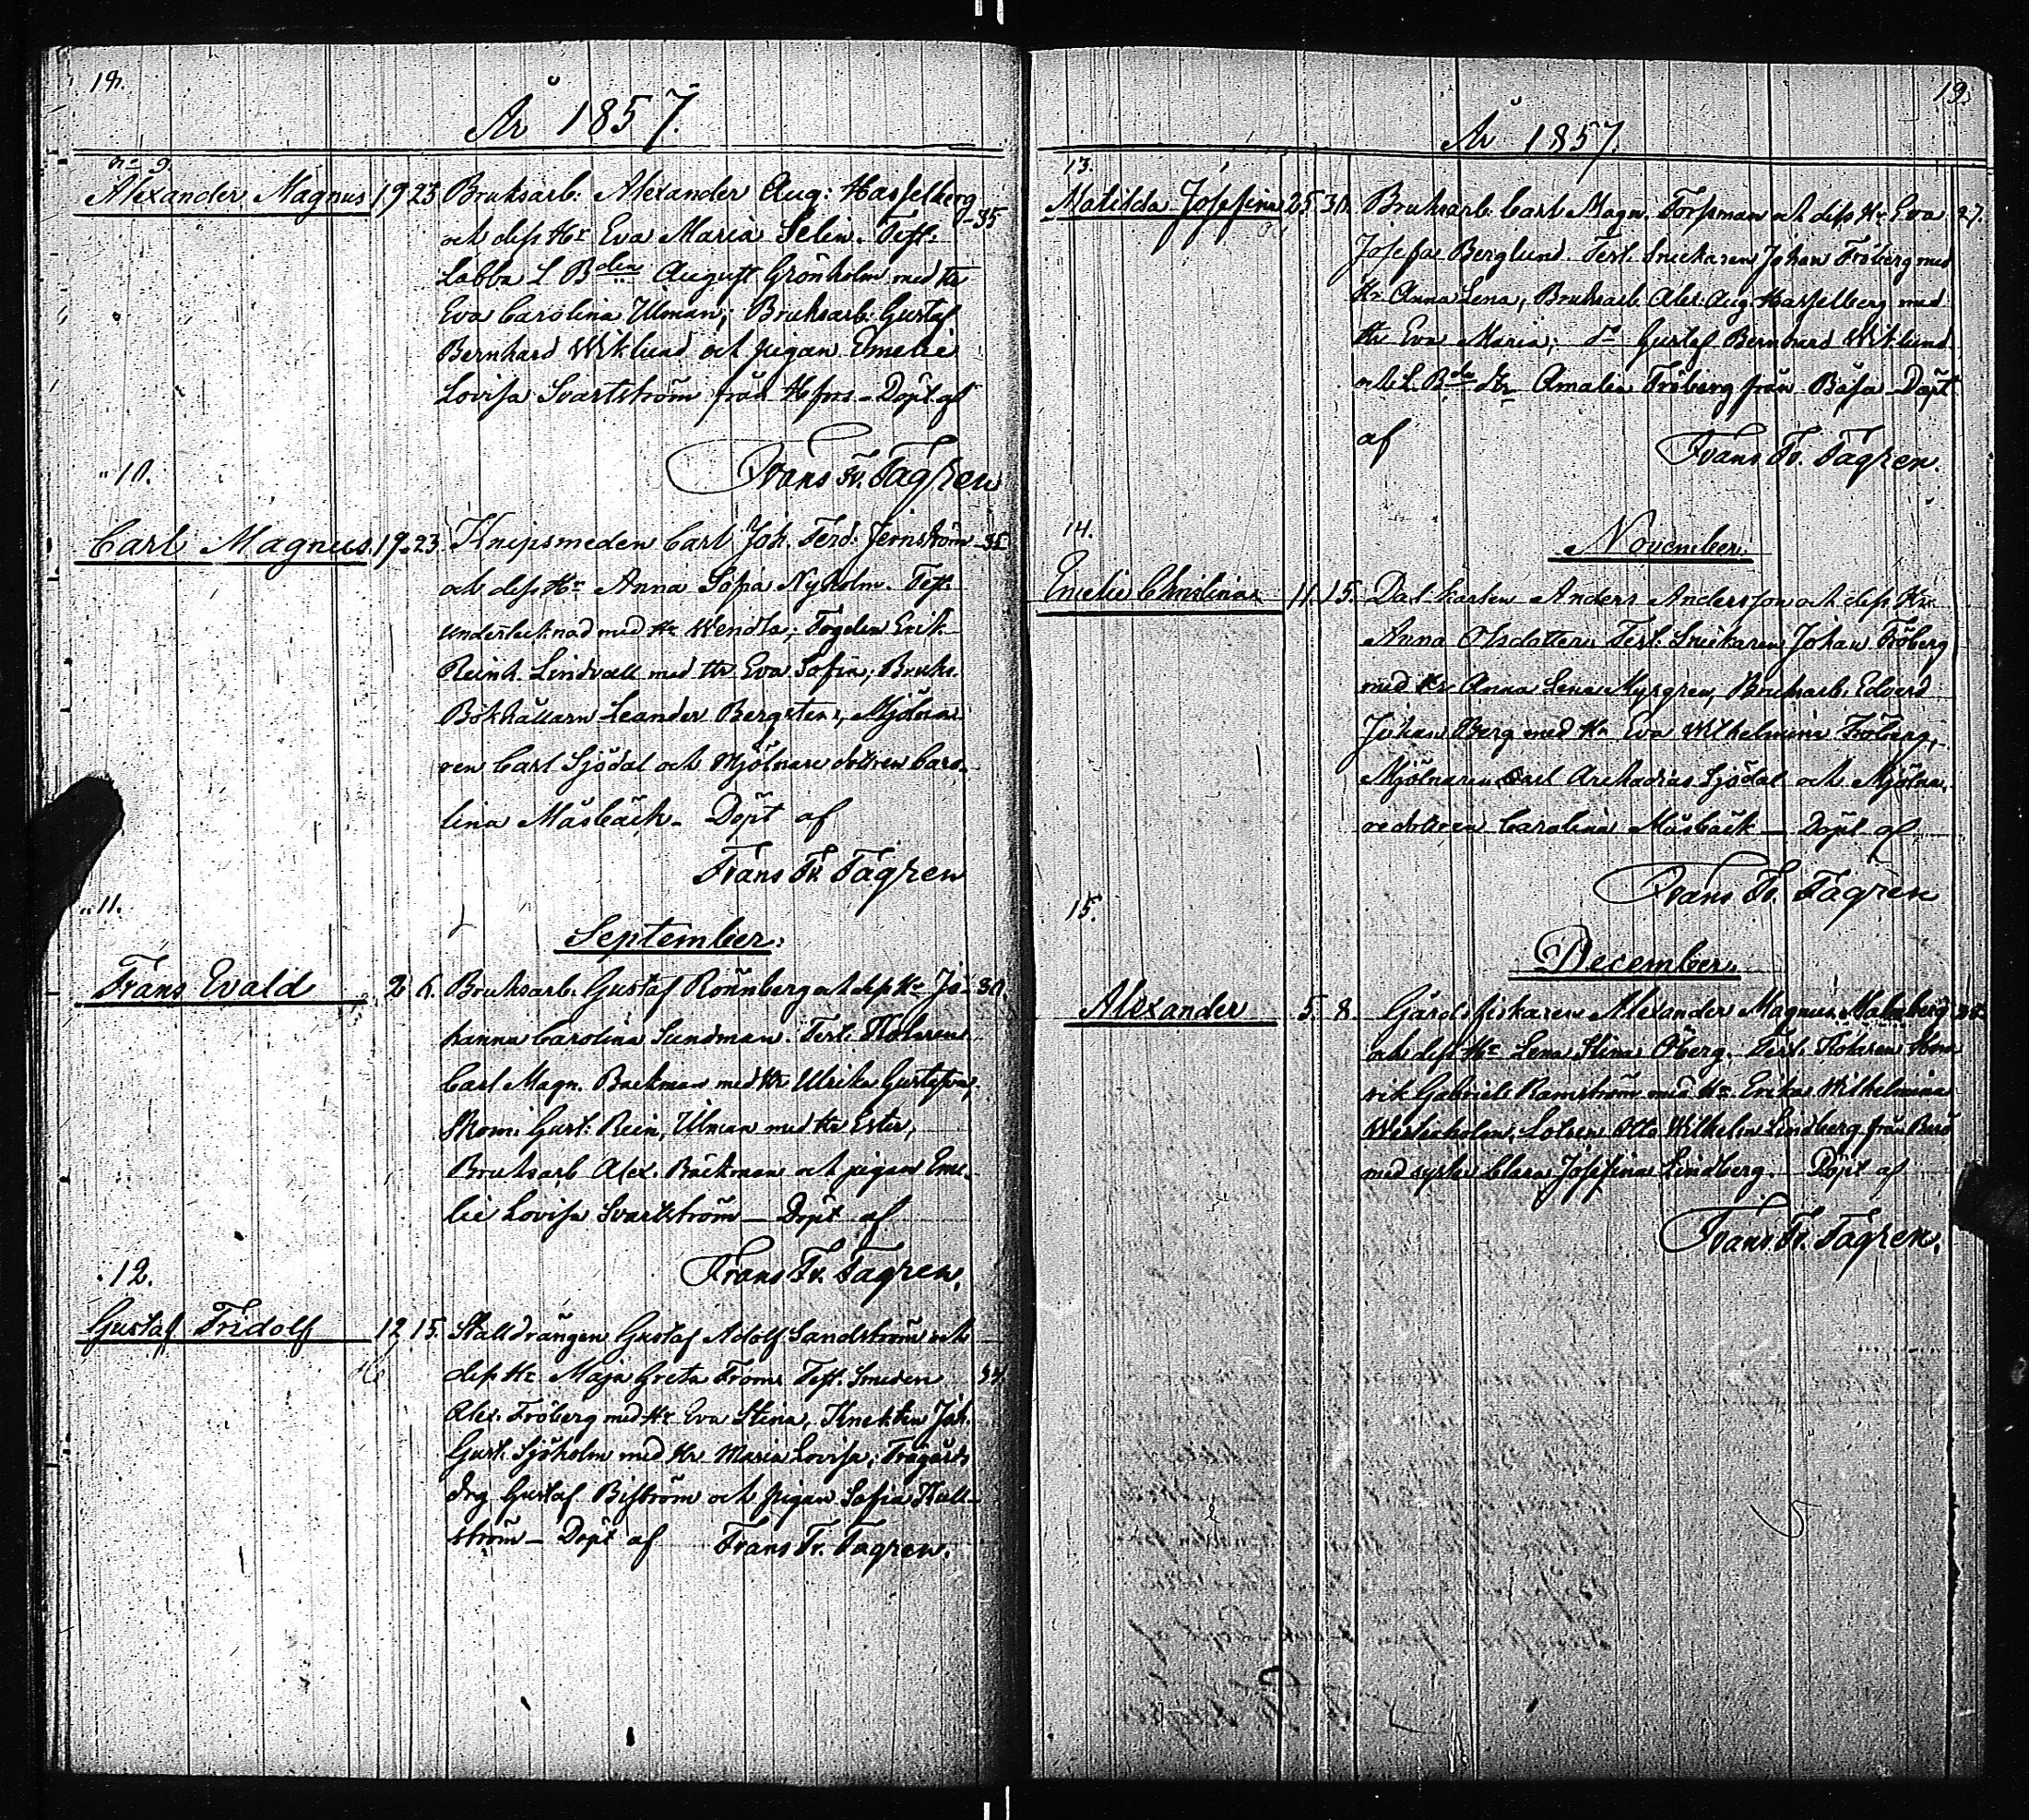 18.
År 1857.
No 9.
Alexander Magnus 19 23 Bruksarb. Alexander Aug: Hasselberg
och dess Hu Eva Maria Selin. Test: 35
Labba L Bden August Grönholm med Hu
Eva Carolina Ulman; Bruksarb: Gustaf
Bernhard Wiklund och pigan Emelie
Lovisa Svartström från Hfors - Döpt af
Frans Fr. Tagren
" 10.
Carl Magnus. 19. 23. Knipsmeden Carl Joh. Ferd: Jernström 35
och dess Hu Anna Sofia Nyholm. Test.
Undertecknad med Hu Wendla; Fogden Erik
Reinh. Lindvall med Hu Eva Sofia, Bruks
Bokhållarn Leander Bergsten, Mjölna-
ren Carl Sjödal och Mjölnare dottren Caro-
lina Måsbäck - Döpt af
Frans Fr. Tagren
" 11.
September.
Frans Evald 2 6. Bruksarb. Gustaf Rönnberg och dess Hu Jo- 30.
hanna Carolina Sundman. Test. Kolaren
Carl Magn. Backman med Hu Ulrika Gustafva,
Gust: Rein, Ulman med Hu Ester,
Bruksarb Alex. Bäckman och pigan Eme-
lie Lovisa Svartström - Döpt af
Frans Fr. Tagren.
12.
Gustaf Fridolf 12 15. Stalldrängen Gustaf Adolf Sandström och
dess Hu Maja Greta From. Test. Smeden 34.
Alex. Fröberg med Hu Eva Stina, Knekten Joh.
Gust. Sjöholm med Hu Maria Lovisa; Trägårds
drg Gustaf Biström och pigan Sofia Kall-
ström - Döpt af Frans Fr. Tagren.
19.
År 1857.
13.
Matilda Josefina 25 30. Bruksarb. Carl Magn. Forsman och dess Hu Eva 27.
Josefa Berglund. Test. Snickaren Johan Fröberg med
Hu Anna Lena, Bruksarb. Alex. Aug. Hasselberg med
Hu Eva Maria; do Gustaf Bernhard Wiklund
och L. Bde dr Amalia Fröberg från Båsa Döpt
af Frans Fr. Tagren.
14.
November.
Emelie Christina 11. 15. Dalkarlen Anders Andersson och dess Hu
Anna Olsdotter. Test. Snickaren Johan Fröberg
med Hu Anna Lena Myrgren, Bruksarb. Edvard
Johan Berg med Hu Eva Wilhelmina Fröberg,
Mjölnaren Carl Archadias Sjödal och Mjölna-
redottren Carolina Måsbäck - Döpt af
Frans Fr. Tagren
15.
December.
Alexander 5. 8. Gårdsfiskaren Alexander Magnus Malmberg
och dess Hu Lena Stina Öberg. Test. Kolaren Hen-
rik Gabriel Ramström med Hu Erika Wilhelmina
Westerholm, Lotsen Otto Wilhelm Lindberg från Barö
med syster Clara Josefina Lindberg. Döpt af
Frans Fr. Tagren.